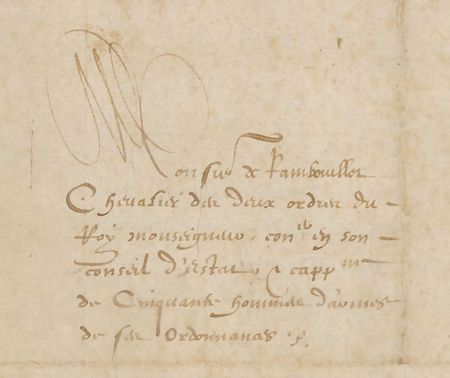 Monsieʳ de Rambouillet
Chevalier des deux ordres du
Roy monseigneur, conᵉʳ en son
conseil d'Estat, & cappⁿᵉ
de Cinquante hommes d'armes
de ses Ordonnances.